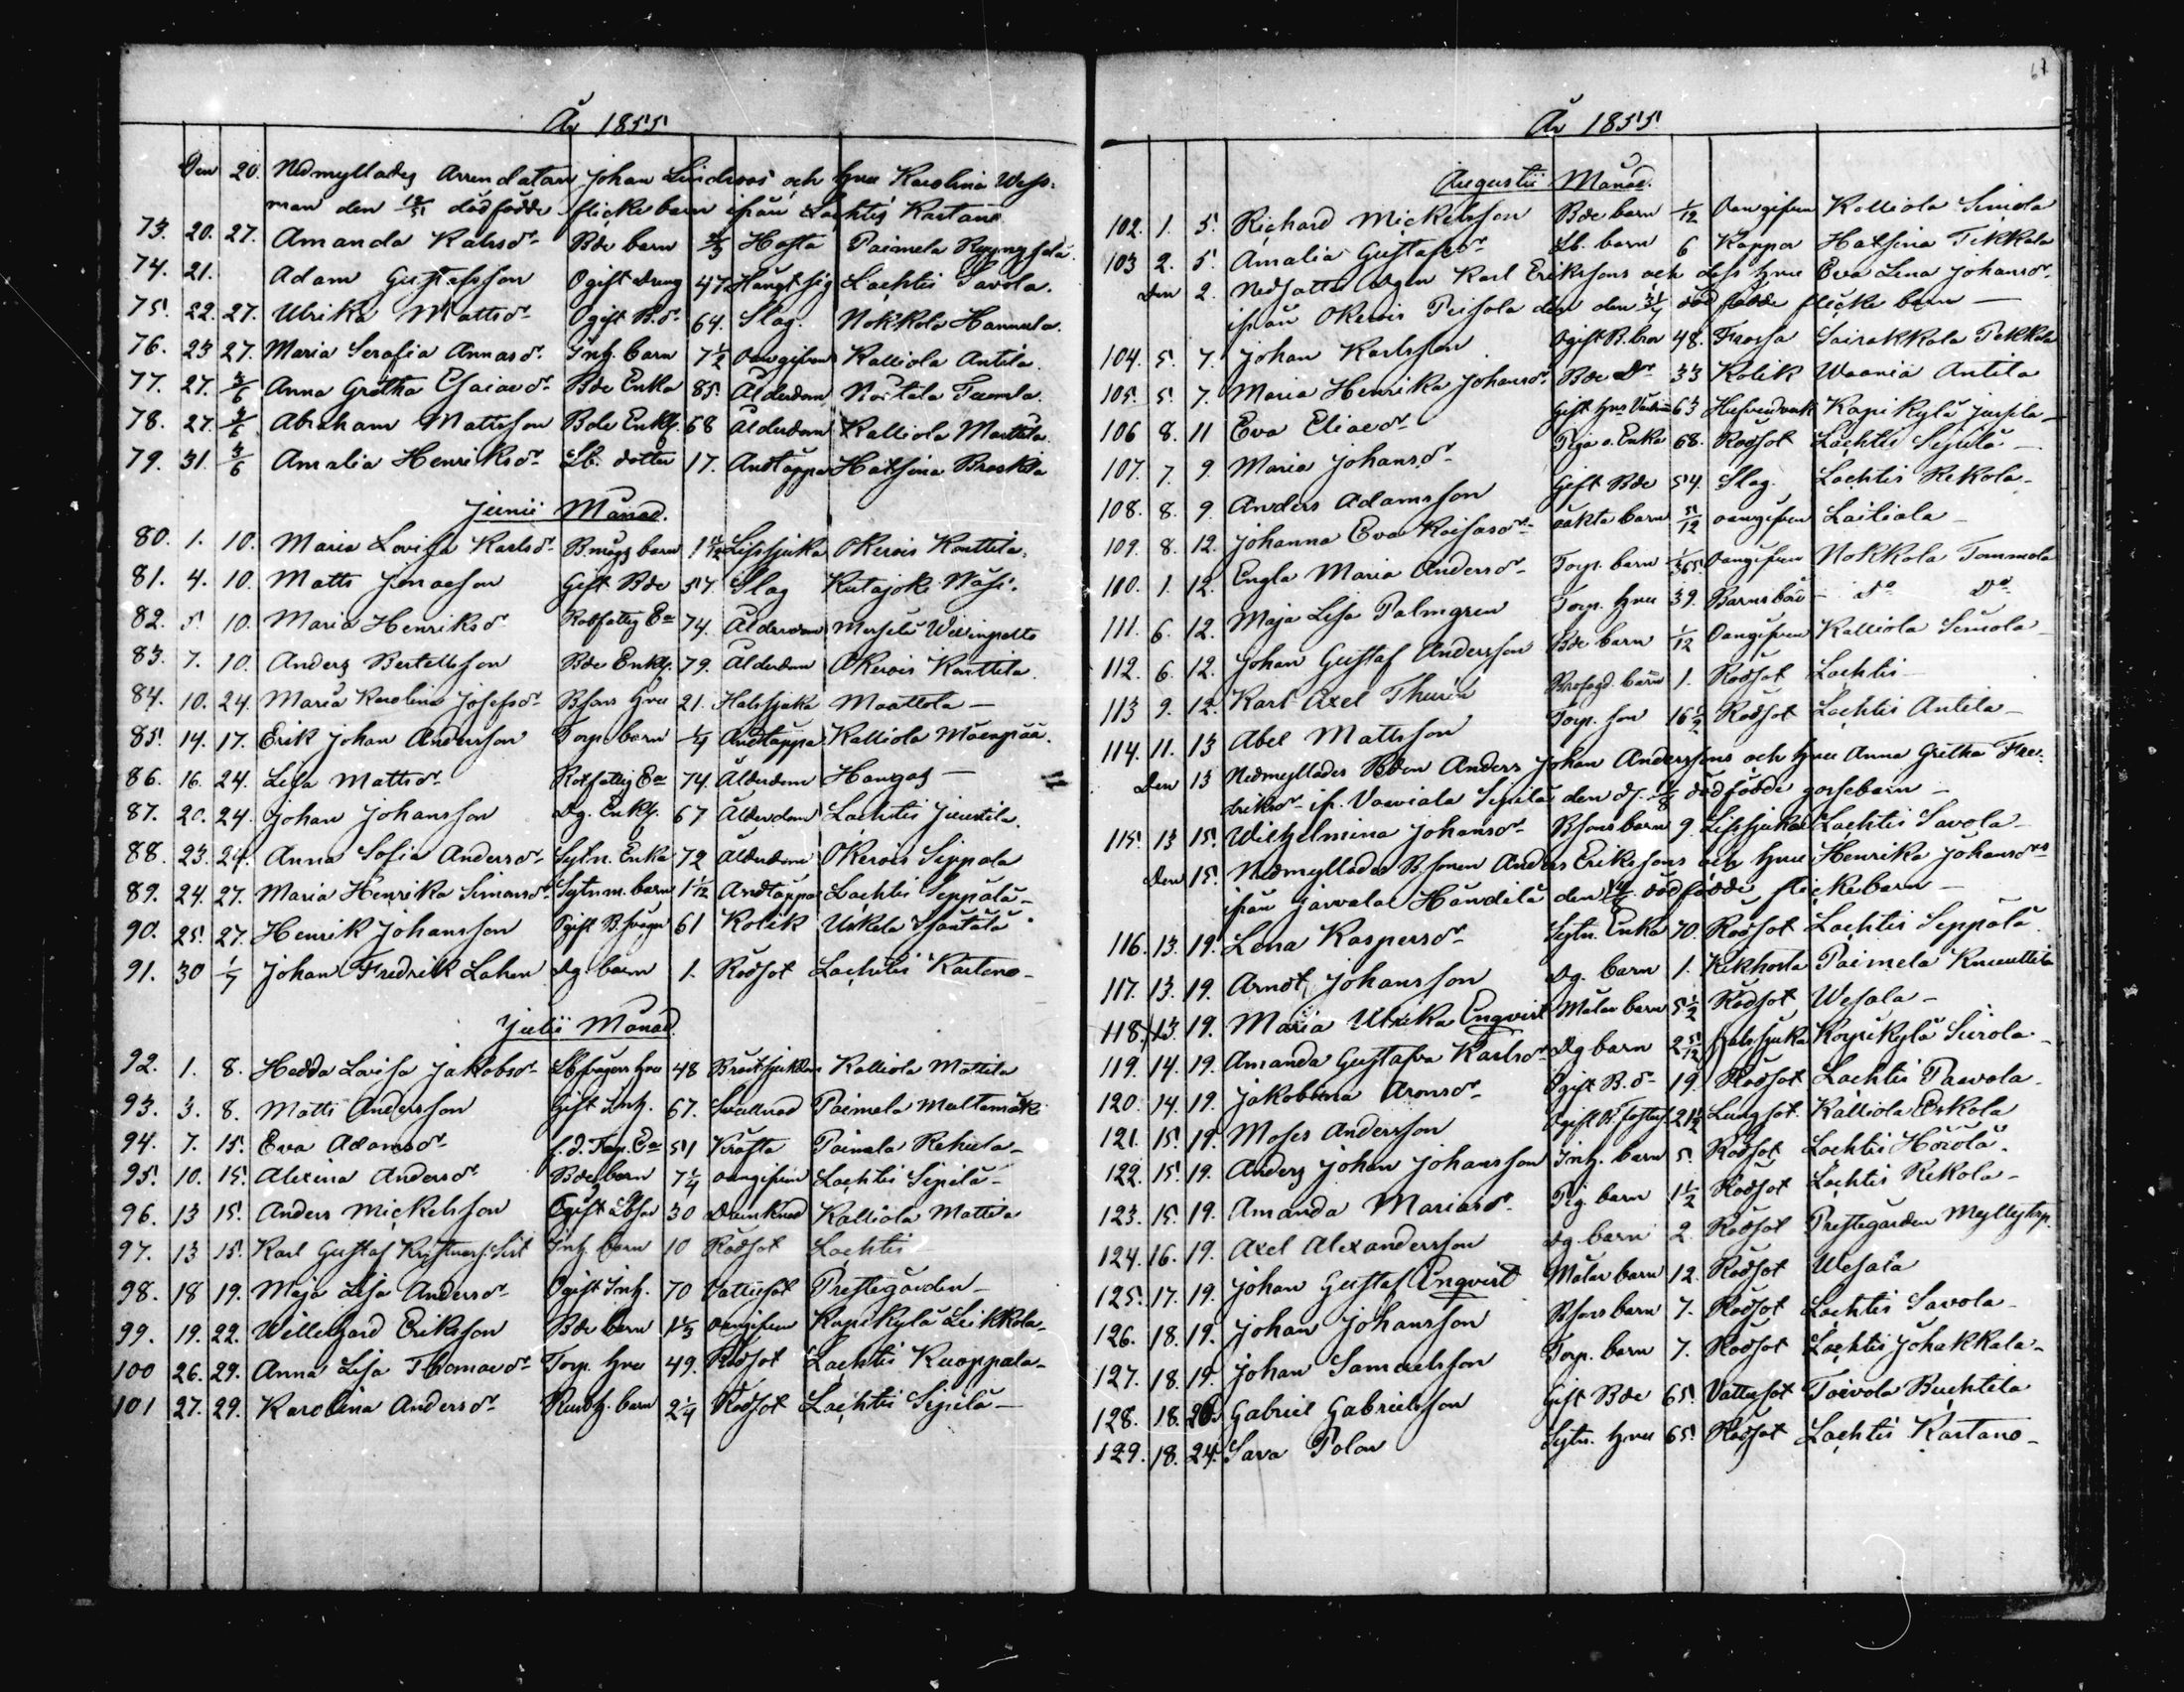 År 1855
Den 20. Nedmyllades Arrendatorn Johan Lindroos och hru Karolina Wess-
man den 18/5 dödfödde flickebarn ifrån Lachtis Kartano
73. 20. 27. Amanda Karlsdr Bde barn 2/3 Hosta Paimela
74. 21. Adam Gustafsson Ogift dreng 47 Hängt sig Lachtis Pavola.
75. 22. 27. Ulrika Mattsdr Ogift B.dr 64. Slag. Nokkola Hannula.
76. 23 27. Maria Serafia Annasdr Inh. barn 7 1/2 Oangifven Kalliola Antila.
77. 27. 3/6 Anna Gretha Esaiaedr Bde Enka 85. Ålderdom Noitela
78. 27. 3/6 Abraham Mattsson Bde Enkl. 68 Ålderdom Kalliola Mattila.
79. 31. 3/6 Amalia Henriksdr Lb. dotter 17. Andtäppa Hatsina
Junii Månad.
80. 1. 10. Maria Lovisa Karlsdr B.mågs barn Lifssjuka Okerois Konttila.
81. 4. 10. Matts Jonaesson Gift Bde 57. Slag Kutajoki
82. 5. 10. Maria Henriksdr Rotfattig Ea 74. Ålderdom
83. 7. 10. Anders Bertellsson Bde Enkl. 79. Ålderdom Okerois Konttila.
84. 10. 24. Maria Karolina Josefsdr Bsons hru 21. Halssjuka
85. 14. 17. Erik Johan Andersson Torp. barn 1/4 Andtäppa Kalliola Mäenpää.
86. 16 24. Lisa Mattsdr Rotfattig Ea 74. Ålderdom
87. 20. 24. Johan Johansson Dg. Enkl. 67 Ålderdom Lachtis Juntila.
88. 23. 27. Anna Sofia Andersdr Sytn. Enka 72 Ålderdom Okerois Seppala
89. 24. 27. Maria Henrika Simonsdr Sytnm. barn 1 1/12 Andtäppa Lachtis Seppälä
90. 25. 27. Henrik Johansson Ogift B.svåger 61 Kolik Uskela
91. 30 1/7 Johan Fredrik Lahen Dg. barn 1. Rödsot Lachtis Kartano
Julii Månad.
92. 1. 8. Hedda Lovisa Jakobsdr hru 48 Bröstsjukdom Kalliola Mattila
93. 3. 8. Matts Andersson Gift Inh. 67. Svullnad Paimela
94. 7. 15. Eva Adamsdr f.d. Torp. Ea 51 Kräfta Paimela
95. 10. 15. Alexina Andersdr Bde barn 7 1/4 oangifven Lachtis Sipilä
96. 13 15. Anders Mickelsson Ogift 30 Drunknad Kalliola Mattila
97. 13 15. Karl Gustaf Inh. barn 10 Rödsot Lachtis
98. 18 19. Maja Lisa Andersdr Ogift Inh. 70 Vattusot Prestegården
99. 19. 22. Willehard Eriksson Bde barn oangifven
100 26. 29. Anna Lisa Thomaedr Torp. hru 49. Rödsot Lachtis Kuoppala
101 27. 29. Karolina Andersdr Rusth. barn 2 1/4 Rödsot Lachtis Sipilä
År 1855
Augustii Månad.
102. 1. 5. Richard Mickelsson Bde barn 1/12 Oangifven Kalliola Simola
103 2. 5. Amalia Gustafsdr Lb. barn 6 Koppor Hatsina Tikkala
Den 2. Nedsattes Dgen Karl Erikssons och dess hru Eva Lena Johansdr
ifrån Okerois den 31/7 död födde flicke barn
104. 5. 7. Johan Karlsson Ogift B.bror 48. Frossa Sairakkala
105. 5. 7. Maria Henrika Johansdr Bde Dr 33 Kolik Waania Antila
106 8. 11 Eva Eliaedr Gift 63 Hufvudverk
107. 7. 9. Maria Johansdr Enka 68. Rödsot Lachtis Sipilä
108. 8. 9. Anders Adamsson Gift Bde 54. Slag. Lachtis Rekola
109. 8. 12. Johanna Eva oäkta barn oangifven Laitiala
110. 1. 12. Engla Maria Andersdr Torp. barn 1/365 Oangifven Nokkola Tommola
111. 6. 12. Maja Lisa Palmgren Torp. hru 39. Barnsbörd Do Do
112. 6. 12. Johan Gustaf Andersson Bde barn 1/12 Oangifven Kalliola Simola
113 9. 12. Karl Axel Thurén barn 1. Rödsot Lachtis
114. 11. 13 Abel Mattsson Torp. son 16 1/2 Rödsot Lachtis Antila
Den 13 Nedmyllades Bden Anders Johan Anderssons och hru Anna Gretha Fre-
driksdr ifr. Sipilä den dödfödde gossebarn
115. 13 15. Wilhelmina Johansdr Bsons barn 9. Lifssjuka Lachtis Savola
Den 15. Nedmyllades B.sonen Anders Erikssons och hru Henrika Johansdrs
ifrån Järvala den dödfödde flickebarn
116. 13. 19. Lena Kaspersdr Sytn. Enka 70. Rödsot Lachtis Seppälä
117. 13. 19. Arndt Johansson Dg. barn 1. Kikhosta Paimela
118. 13. 19. Maria Ulrika Enqvist Målar barn 5 1/2 Rödsot Wesala
119. 14. 19. Amanda Gustafva Karlsdr Dg barn 2 5/12 halssjuka
120. 14. 19. Jakobina Aronsdr Ogift B.dr 19. Rödsot Lachtis Paavola
121. 15. 19. Moses Andersson Ogift 21 1/2 Lungsot. Kalliola Eskola
122. 15. 19. Anders Johan Johansson Inh. barn 5. Rödsot Lachtis Hörölä
123. 15. 19. Amanda Mariasdr Pig. barn 1 1/2 Rödsot Lachtis Rekola
124. 16. 19. Axel Alexandersson Dg. barn 2. Rödsot Prestegården
125. 17. 19. Johan Gustaf Enqvist Målar barn 12. Rödsot Wesala
126. 18. 19. Johan Johansson Bsons barn 7. Rödsot Lachtis Savola
127. 18. 19. Johan Samuelsson Torp. barn 7. Rödsot Lachtis
128. 18. 26. Gabriel Gabrielsson Gift Bde 65. Vattusot Toivola
129. 18. 24. Sara Polon Sytn. hru 65. Rödsot Lachtis Kartano